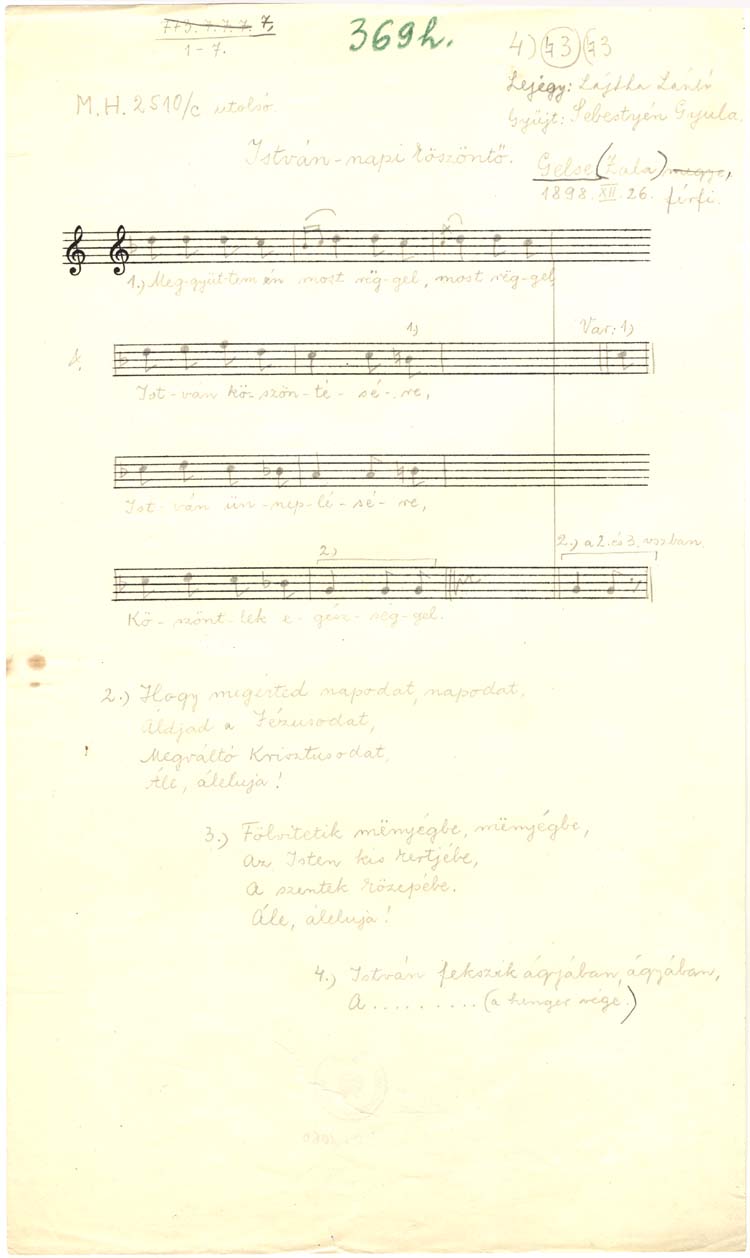 773. 7. 7. 7. 7. 7,
1-7.
369h.
4) ♮3 (♮3
M.H. 2510/c utolsó.
Lejegy: Lajtha László
Gyüjt: Sebestyén Gyula.
István-napi köszöntő.
Gelse (Zala) megye,
1898. XII. 26. férfi.
1.) Meg-gyüt-tem én most rëg-gel, most rëg-gel,
1,
Var: 1)
Ist-ván kö-szön-té-sé-re,
Ist-ván ün-nep-lé-sé-re,
2,
2.) a 2. és 3. vszban.
Kö-szönt-lek e-gész-ség-gel.
2.) Hogy megérted napodat, napodat,
Áldjad a Jézusodat,
Megváltó Krisztusodat,
Ále, áleluja!
3.) Fölvitetik mënyégbe, mënyégbe,
Az Isten kis kertjébe,
A szentek közepébe.
Ále, áleluja!
4.) István fekszik ágyjában, ágyjában,
A .......... (a henger vége.)